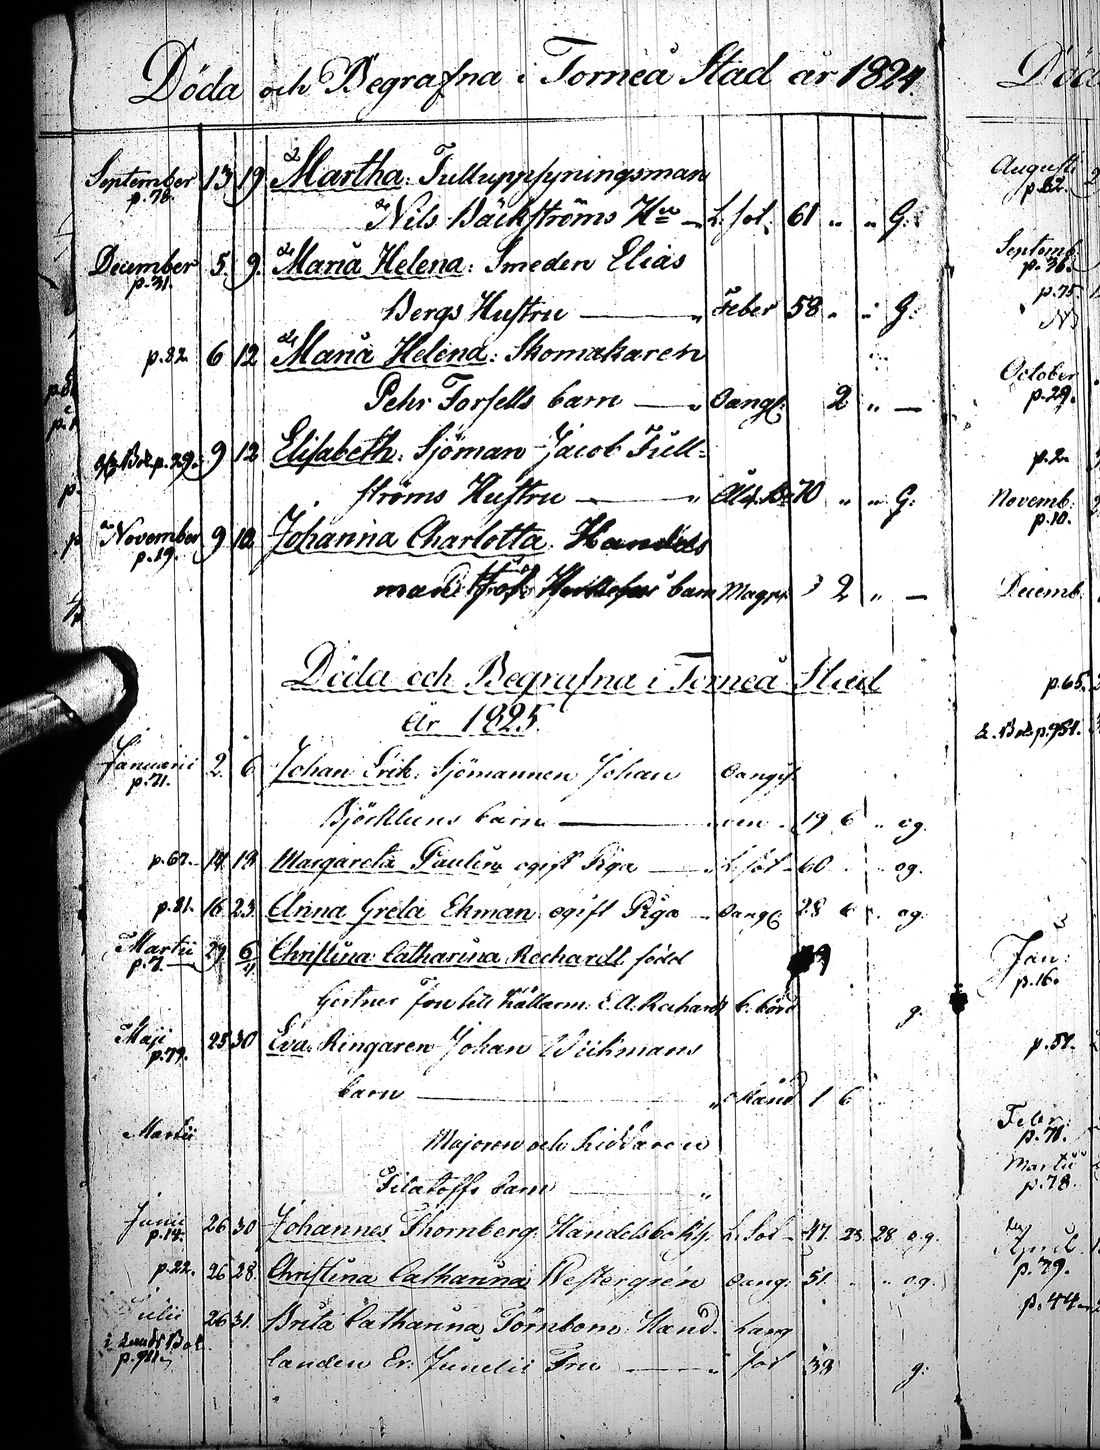 Döda och Begrafna i Torneå Stad år 1824.
September 13 19 Martha: Tulluppsyningsman
p. 78.
Nils Bäckströms Hu — L. sot. 61 " " G:
December 5. 9. Maria Helena: Smeden Elias
p. 31.
Bergs Hustru — " Feber 58 " " G:
p. 82. 6 12 Maria Helena: Skomakaren
Pehr Forsells barn — " Oangf: 2 " —
p. 29. 9 12 Elisabeth: Sjöman Jacob Full-
ströms Hustru — " 70 " " G:
November 9 12 Johanna Charlotta: Handels
p. 19.
man barn Magr. 2 " —
Döda och Begrafna i Torneå Stad
år 1825.
Januarii 2. 6 Johan Erik: Sjömannen Johan Oangif
p. 71.
Björklunds barn — ven 19 6 " og.
p. 67. 14 19 Margareta Paulin ogift Piga — L. sot 60 og.
p. 81. 16 23. Anna Greta Ekman ogift Piga " Oangf. 28 6 og.
Martii 29 6 Christina Catharina Rechardt född
p. 7.
Fru till Källarm: E. A. Rechardt g.
Maji 25 30 Eva: Ringaren Johan Wickmans
p. 79.
barn — " Okänd 1 6
Martii Majoren och Riddaren
Filatoffs barn — "
Junii 26 30 Johannes Thornberg: Handelsbokh. L. Sot 47. 23 28 og.
p. 14.
p. 22. 26 28. Christina Catharina Westergrén Oang. 51. " og.
Julii 26 31. Brita Catharina Törnbom: Hand. Lung
p. 911
landen Er. Junelii Fru — " sot 38 g:
Augusti
p. 82.
Septemb.
p. 36.
p. 75
October
p. 29.
p. 2.
Novemb.
p. 10.
Decemb.
p. 65.
p. 951.
Jan:
p. 16.
p. 51.
Febr:
p. 71.
Martii
p. 78.
April
p. 79.
p. 44